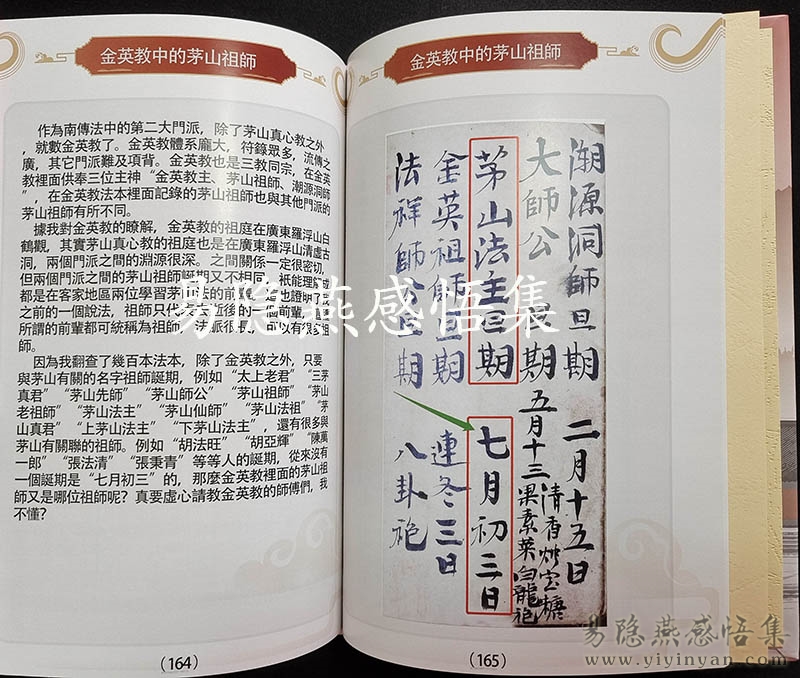 金英教中的茅山祖師
作為南傳法中的第二大門派，除了茅山真心教之外
，就數金英教了。金英教體系龐大，符錄眾多，流傳之
廣，其它門派難及項背。金英教也是三教同宗，在金英
教裡面供奉三位主神“金英教主、茅山祖師、潮源洞師
”，在金英教法本裡面記錄的茅山祖師也與其他門派的
茅山祖師有所不同。
據我對金英教的瞭解，金英教的祖庭在廣東羅浮山白
鶴觀，其實茅山真心教的祖庭也是在廣東羅浮山清虛古
洞，兩個門派之間的淵源很深。之間關係一定很密切，
但兩個門派之間的茅山祖師誕期又不相同，衹能理解
都是在客家地區兩位學習茅山
之前的一個說法，祖師只代
所謂的前輩都可統稱為祖師，法派很
師。
因為我翻查了幾百本法本，除了金英教之外，只要
與茅山有關的名字祖師誕期，例如“太上老君”“三茅
真君”“茅山先師”“茅山師公”“茅山祖師”“茅山
老祖師”“茅山法主”“茅山仙師”“茅山法祖”“茅
山真君”“上茅山法主”“下茅山法主”，還有很多與
茅山有關聯的祖師。例如“胡法旺”“胡亞輝”“陳萬
一郎”“張法清”“張秉青”等等人的誕期，從來沒有
一個誕期是“七月初三”的，那麼金英教裡面的茅山祖
師又是哪位祖師呢？真要虛心請教金英教的師傅們，我
不懂？
（164）
金英教中的茅山祖師
潮源洞師旦期 二月十五日
大師公旦期 五月十三
清香炒米糖
果素菜白龍袍
茅山法主旦期 七月初三日
金英祖師旦期 連冬三日
法祥師公旦期 八卦袍
（165）
易隐燕感悟集
易隐燕感悟集
www.yiyinyan.com